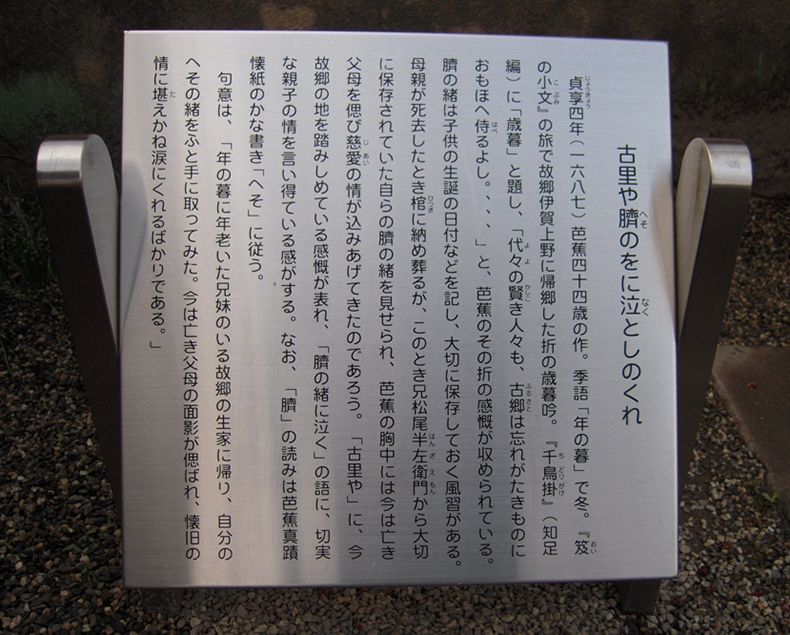 古里や臍のをに泣としのくれ
貞享四年（一六八七）芭蕉四十四歳の作。季語「年の暮」で冬。『笈
の小文』の旅で故郷伊賀上野に帰郷した折の歳暮吟。『千鳥掛』（知足
編）に「歳暮」と題し、「代々の賢き人々も、古郷は忘れがたきものに
おもほへ侍るよし。、、、」と、芭蕉のその折の感慨が収められている。
臍の緒は子供の生誕の日付などを記し、大切に保存しておく風習がある。
母親が死去したとき棺に納め葬るが、このとき兄松尾半左衛門から大切
に保存されていた自らの臍の緒を見せられ、芭蕉の胸中には今は亡き
父母を偲び慈愛の情が込みあげてきたのであろう。「古里や」に、今
故郷の地を踏みしめている感慨が表れ、「臍の緒に泣く」の語に、切実
な親子の情を言い得ている感がする。なお、「臍」の読みは芭蕉真蹟
懐紙のかな書き「へそ」に従う。
句意は、「年の暮に年老いた兄妹のいる故郷の生家に帰り、自分の
へその緒をふと手に取ってみた。今は亡き父母の面影が偲ばれ、懐旧の
情に堪えかね涙にくれるばかりである。」